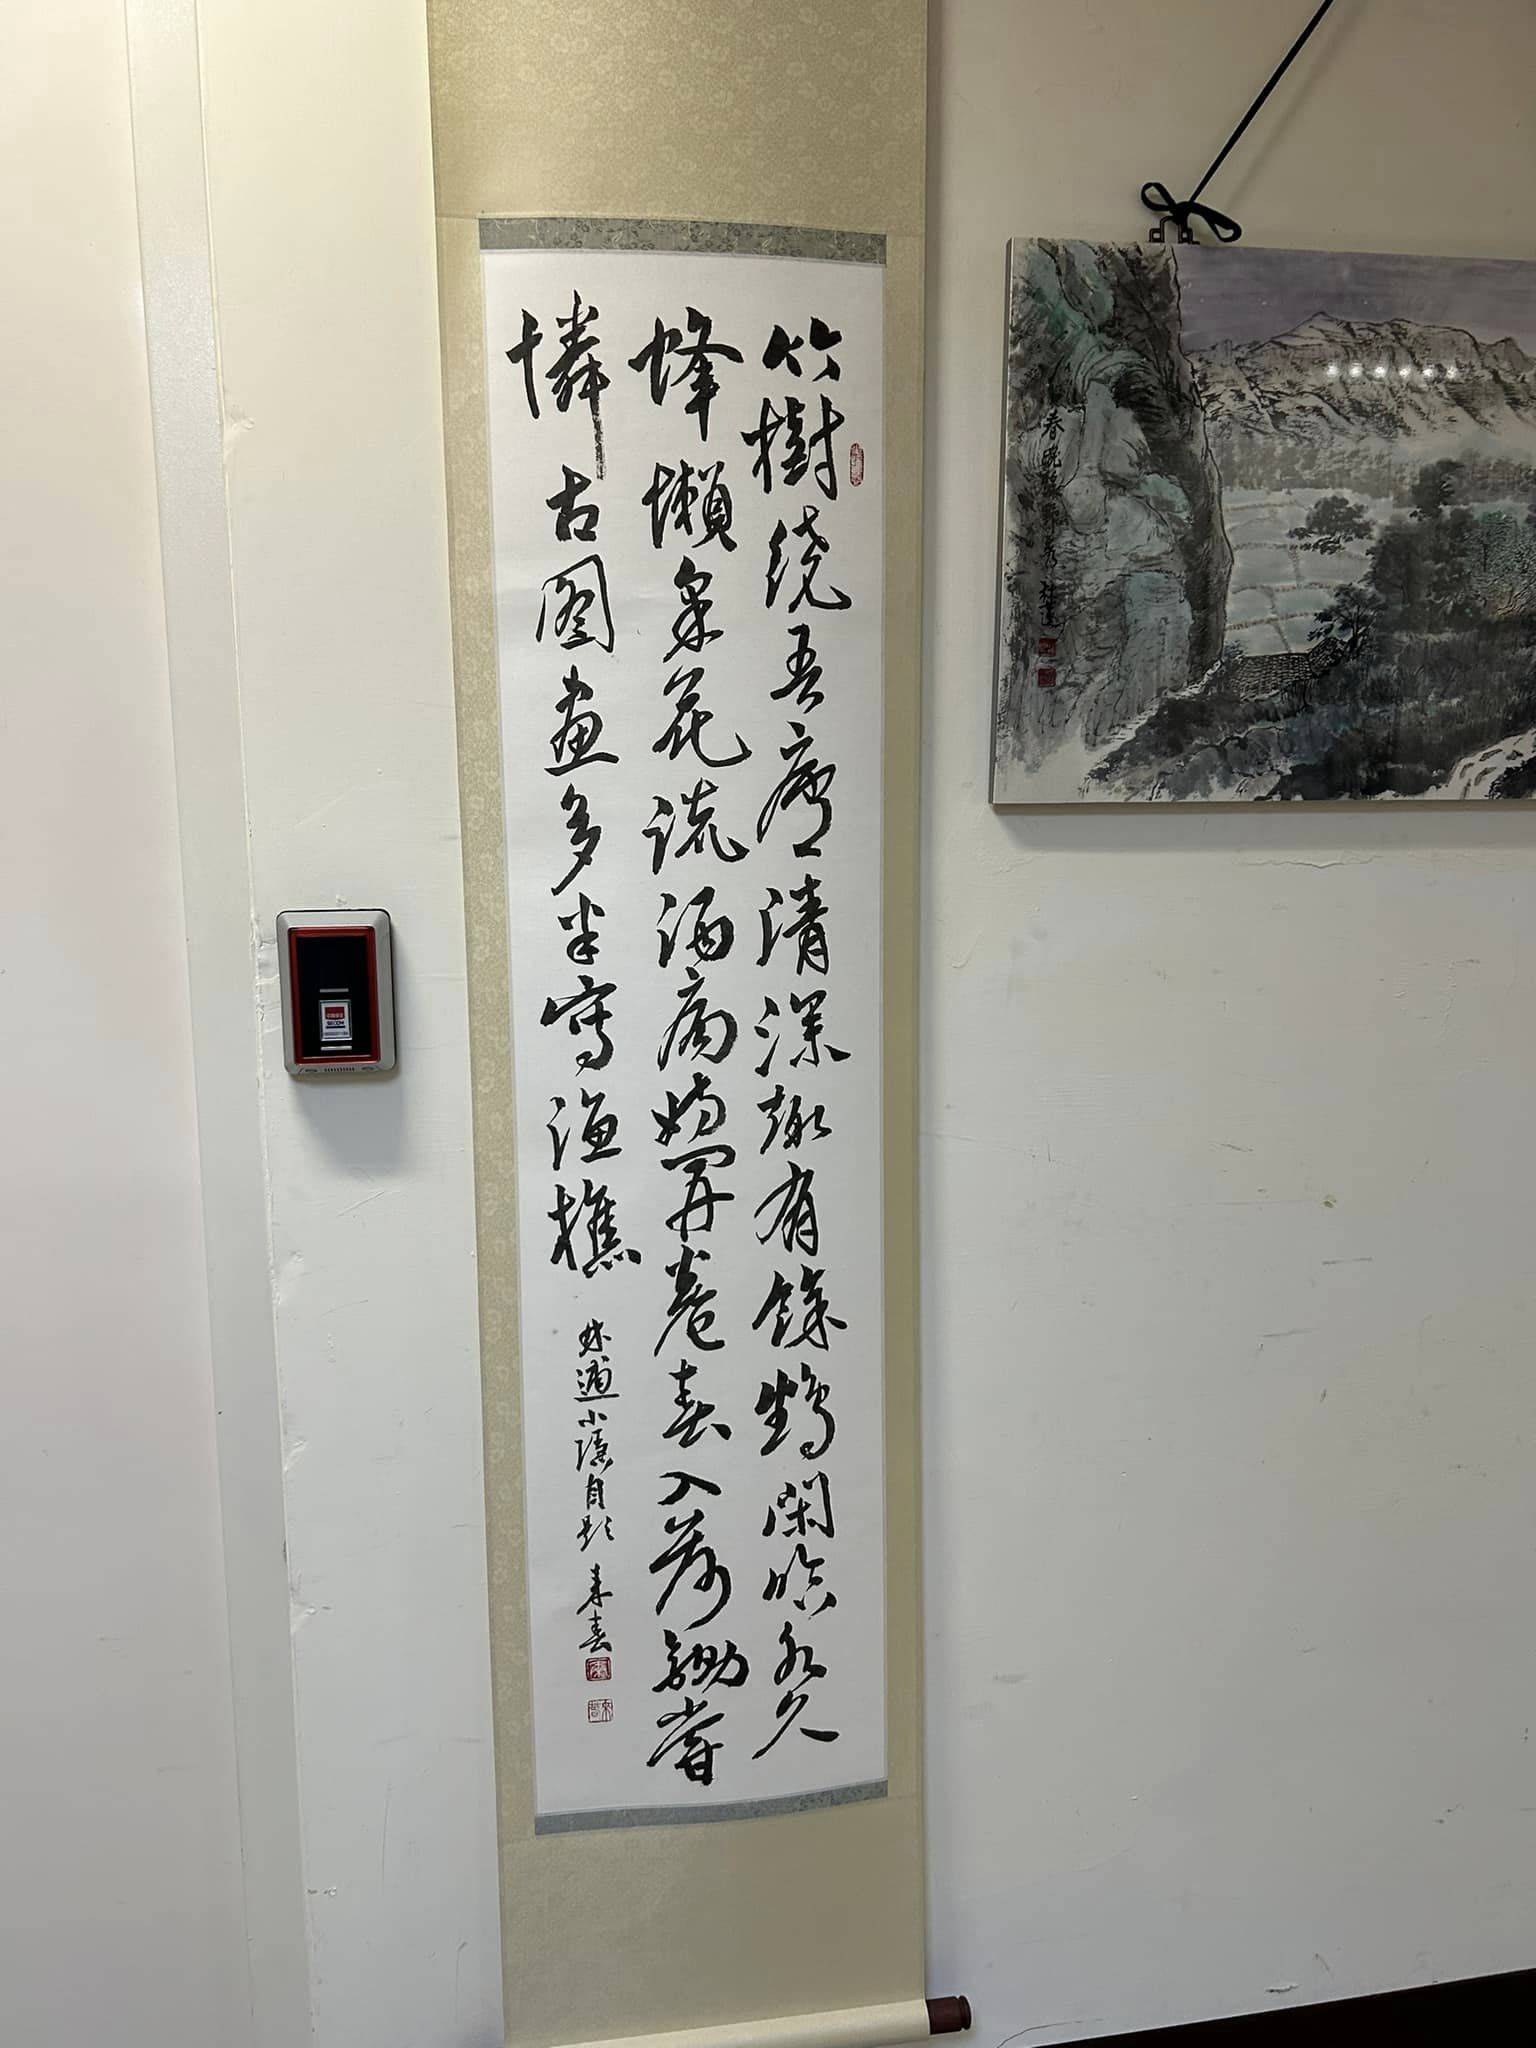 竹樹绕吾廬清深趣有餘鶴閑臨水久
蜂懶采花疏酒病妨開卷春入荷鋤嘗
憐古圖畫多半寫漁樵
林逋小隱自題
SECOM